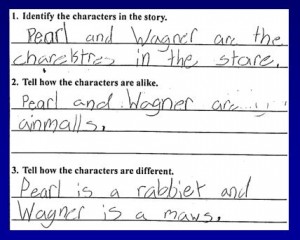 1. Identify the characters in the story.
Pearl and Wagner are the
charecktres in the store.
2. Tell how the characters are alike.
Pearl and Wagner are
ainmalls.
3. Tell how the characters are different.
Pearl is a rabbiet and
Wagner is a maws.